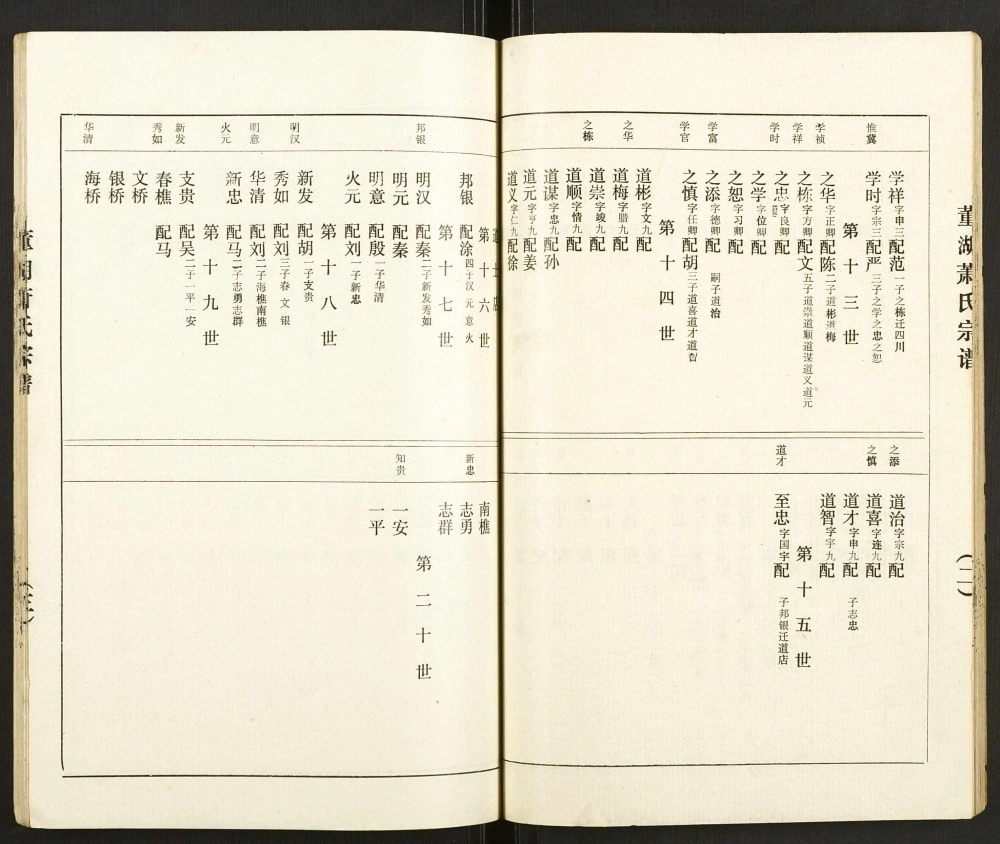 董湖萧氏宗谱
(二)
惟冀
学祥字申三配范 一子之栋迁四川
学时字宗三配严 三子之学之忠之恕
第十三世
学祯
之华字正卿配陈 二子道彬道梅
学祥
之栋字方卿配文 五子道崇道顺道谋道义道元
学时
之忠字良卿配
之学字位卿配
之恕字习卿配
学富
之添字德卿配 嗣子道治
学官
之慎字任卿配胡 三子道喜道才道智
第十四世
之华
道彬字文九配
道梅字腊九配
之栋
道崇字竣九配
道顺字情九配
道谋字忠九配孙
道元字亨九配姜
道义字仁九配徐
之添
道治字宗九配
之慎
道喜字连九配
道才字申九配 子志忠
道智字宇九配
第十五世
道才
至忠字国宇配 子邦银迁道店
第十六世
邦银 配涂 四子汉元意火
第十七世
邦银
明汉 配秦 二子新发秀如
明元 配秦
明意 配殷 一子华清
火元 配刘 一子新忠
第十八世
明汉
新发 配胡 一子支贵
秀如 配刘 三子春文银
明意
华清 配刘 二子海樵南樵
火元
新忠 配马 二子志勇志群
第十九世
新发
支贵 配吴 二子一平一安
秀如
春樵 配马
文桥
银桥
华清
海桥
南樵
新忠
志勇
志群
第二十世
知贵
一安
一平
(三)